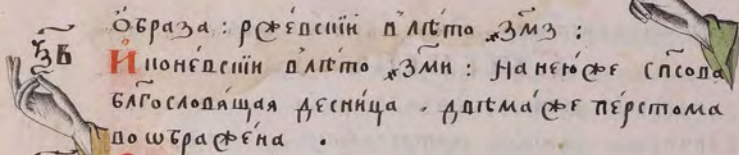 ѻ҆́браза : рже́вскїи в лѣ́то ҂зм҃з :
ѯ҃в
И҆поне́вскїи в лѣ́то ҂зм҃и : на нею́же сп҃сова
блг҃ословѧ́щая десни́ца . двѣма́же пе́рстома
воѡбраже́на .